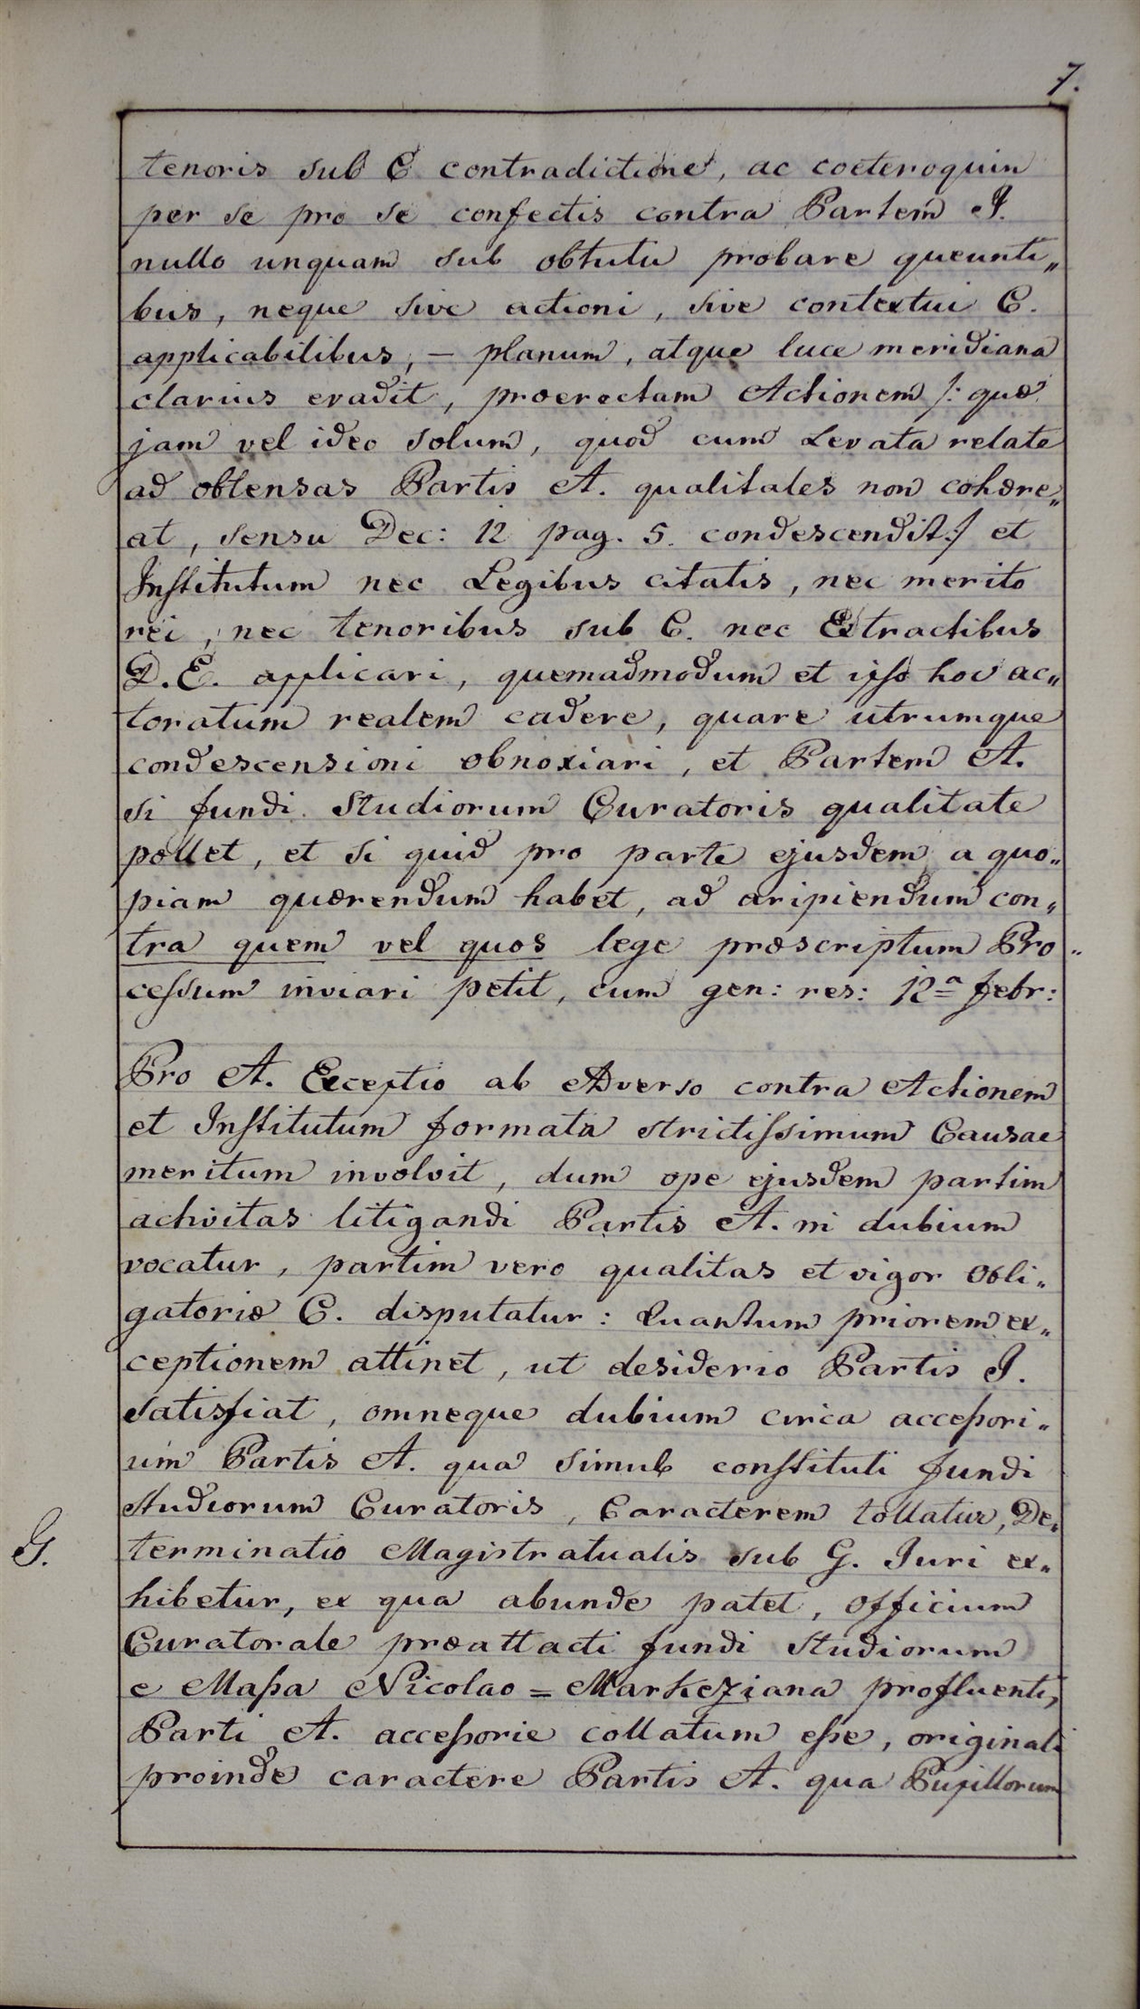 7.
tenoris sub C contradictione, ac coeteroquin
per se pro se confectis contra Partem I.
nullo unquam sub obtutu probare queunti„
bus, neque sive actioni, sive contextui C.
applicabilibus, – planum, atque luce meridiana
clarius evadit, proerectam Actionem /: quæ
jam vel ideo solum, quod cum Levata relate
ad obtensas Partis A. qualitates non cohære„
at, sensu Dec: 12 pag. 5. condescendit :/ et
Institutum nec Legibus citatis, nec merito
rei, nec tenoribus sub C. nec Extractibus
D. E. applicari, quemadmodum et ipso hoc ac„
toratum realem cadere, quare utrumque
condescensioni obnoxiari, et Partem A.
si fundi Studiorum Curatoris qualitate
pollet, et si quid pro parte ejusdem a quo„
piam quærendum habet, ad aripiendum con„
tra quem vel quos lege præscriptum Pro„
cessum inviari petit, cum gen: res: 12ª febr:
Pro A. Exceptio ab Adverso contra Actionem
et Institutum formata strictissimum Causae
meritum involvit, dum ope ejusdem partim
activitas litigandi Partis A. in dubium
vocatur, partim vero qualitas et vigor Obli„
gatoriæ C. disputatur: Quantum priorem ex„
ceptionem attinet, ut desiderio Partis I.
satisfiat, omneque dubium circa accessori„
um Partis A. qua simul constituti fundi
Studiorum Curatoris, Caracterem tollatur, De„
G.
terminatio Magistratualis sub G. Juri ex„
hibetur, ex qua abunde patet, officium
Curatorale præattacti fundi Studiorum
e Massa Nicolao = Markeziana profluenti,
Parti A. accessorie collatum esse, originali
proinde caractere Partis A. qua Pupillorum